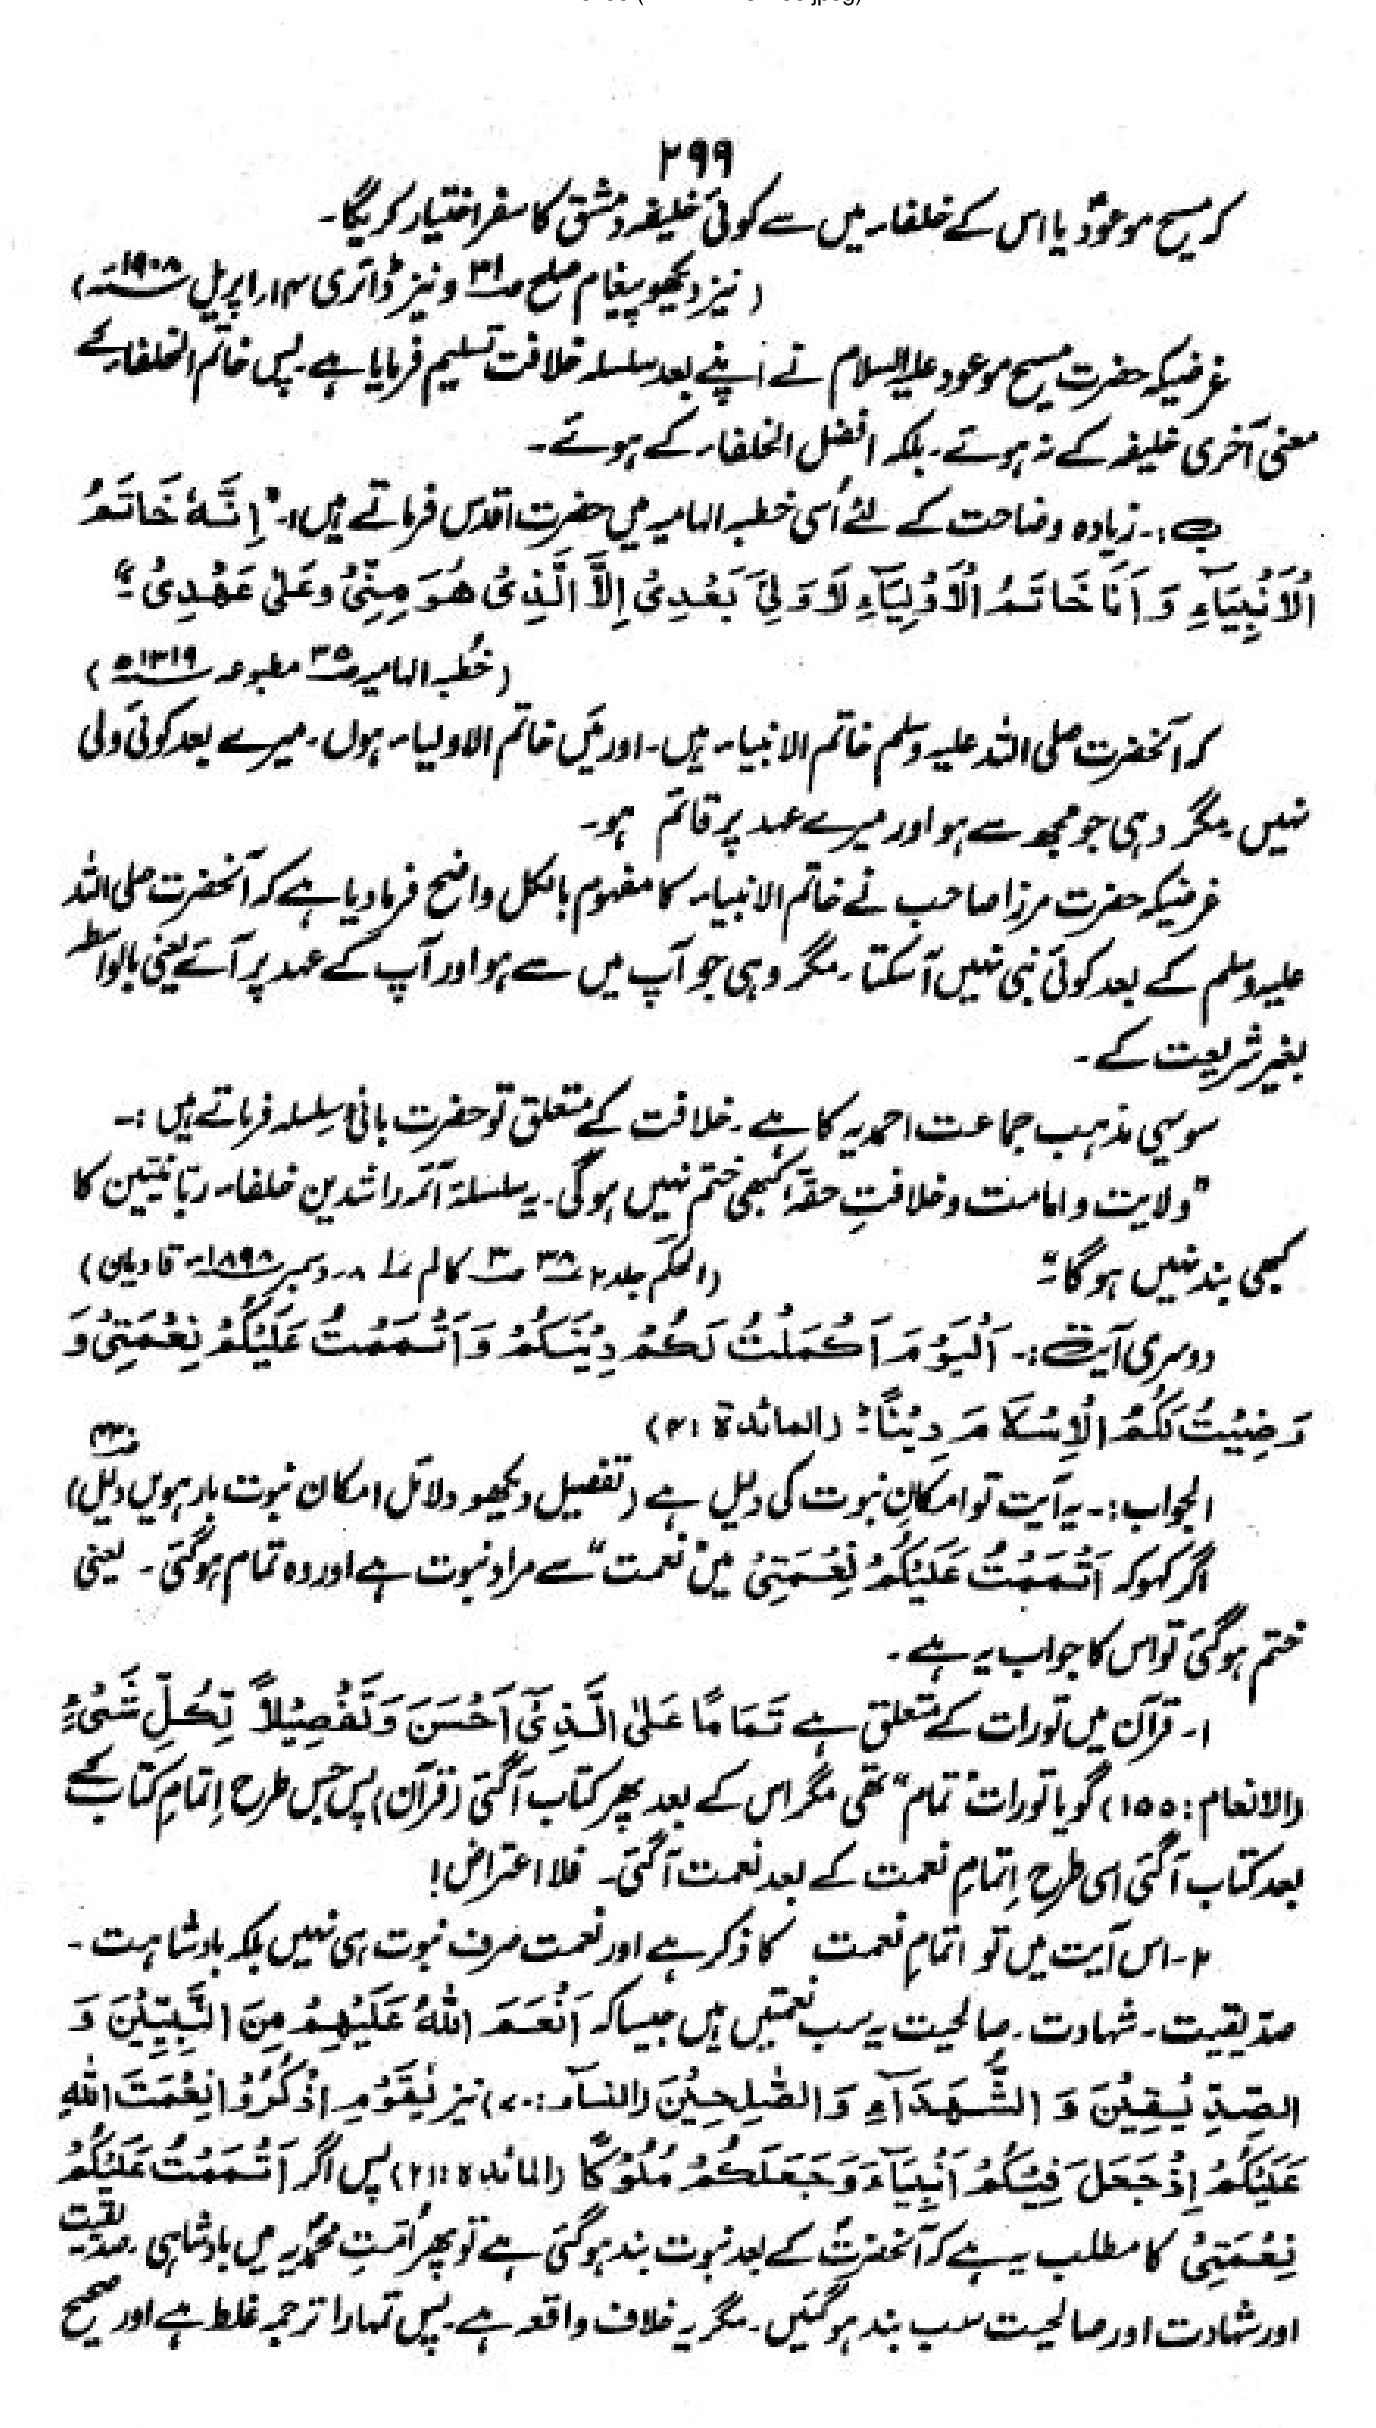 ۲۹۹
کہ مسیح موعودؑ یا اس کے خلفاء میں سے کوئی خلیفہ دمشق کا سفر اختیار کریگا۔
(نیز دیکھو پیغام صلح ص۳۱ و نیز ڈائری ۱۴؍اپریل ۱۹۰۸ء)
غرضیکہ حضرت مسیح موعود علیہ السلام نے اپنے بعد سلسلہ خلافت تسلیم فرمایا ہے۔ پس خاتم الخلفاء کے
معنی آخری خلیفہ کے نہ ہوتے۔ بلکہ افضل الخلفاء کے ہوتے۔
ب:۔ زیادہ وضاحت کے لئے اُسی خطبہ الہامیہ میں حضرت اقدس فرماتے ہیں:۔ "اِنَّہٗ خَاتَمُ
الْاَنْبِیَآءِ وَ اَنَا خَاتَمُ الْاَوْلِیَآءِ لَا وَلِیَّ بَعْدِیْ اِلَّا الَّذِیْ ھُوَ مِنِّیْ وَعَلٰی عَھْدِیْ"۔
(خطبہ الہامیہ ص۳۵ مطبوعہ ۱۳۱۹ھ)
کہ آنحضرت صلی اللہ علیہ وسلم خاتم الانبیاء ہیں۔ اور مَیں خاتم الاولیاء ہوں۔ میرے بعد کوئی ولی
نہیں۔ مگر وہی جو مجھ سے ہو اور میرے عہد پر قائم ہو۔
غرضیکہ حضرت مرزا صاحب نے خاتم الانبیاء کا مفہوم بالکل واضح فرما دیا ہے کہ آنحضرت صلی اللہ
علیہ وسلم کے بعد کوئی نبی نہیں آسکتا۔ مگر وہی جو آپ میں سے ہو اور آپ کے عہد پر آئے یعنی بالواسطہ
بغیر شریعت کے۔
سو یہی مذہب جماعت احمدیہ کا ہے۔ خلافت کے متعلق تو حضرت بانیٔ سلسلہ فرماتے ہیں:۔
"ولایت و امامت و خلافتِ حقہ کبھی ختم نہیں ہوگی۔ یہ سلسلہ آئمہ راشدین خلفاء ربّانیین کا
کبھی بند نہیں ہوگا۔" (الحکم جلد۲ ۳۸ ص۳ کالم ۱ ۸؍دسمبر ۱۸۹۸ء قادیان)
دوسری آیت:۔ اَلْیَوْمَ اَکْمَلْتُ لَکُمْ دِیْنَکُمْ وَاَتْمَمْتُ عَلَیْکُمْ نِعْمَتِیْ وَ
رَضِیْتُ لَکُمُ الْاِسْلَامَ دِیْنًا۔ (المائدۃ:۳)
الجواب:۔ یہ آیت تو امکانِ نبوت کی دلیل ہے (تفصیل دیکھو دلائل امکان نبوت بارہویں دلیل)
اگر کہو کہ اَتْمَمْتُ عَلَیْکُمْ نِعْمَتِیْ میں "نعمت" سے مراد نبوت ہے اور وہ تمام ہوگئی۔ یعنی
ختم ہوگئی تو اس کا جواب یہ ہے۔
۱۔ قرآن میں تورات کے متعلق ہے تَمَامًا عَلَی الَّذِیْٓ اَحْسَنَ وَتَفْصِیْلًا لِّکُلِّ شَیْءٍ
(الانعام:۱۵۵) گویا تورات "تمام" تھی مگر اس کے بعد پھر کتاب آگئی (قرآن) پس جس طرح اِتمامِ کتاب کے
بعد کتاب آگئی اسی طرح اِتمامِ نعمت کے بعد نعمت آگئی۔ فلا اعتراض!
۲۔ اس آیت میں تو اتمامِ نعمت کا ذکر ہے اور نعمت صرف نبوت ہی نہیں بلکہ بادشاہت۔
صدّیقیت۔ شہادت۔ صالحیت یہ سب نعمتیں ہیں جیسا کہ اَنْعَمَ اللّٰہُ عَلَیْھِمْ مِنَ النَّبِیّٖنَ وَ
الصِّدِّیْقِیْنَ وَ الشُّھَدَآءِ وَ الصّٰلِحِیْنَ (النسآء:۷۰) نیز یٰقَوْمِ اذْکُرُوْا نِعْمَتَ اللّٰہِ
عَلَیْکُمْ اِذْ جَعَلَ فِیْکُمْ اَنْبِیَآءَ وَجَعَلَکُمْ مُلُوْکًا (المائدۃ:۲۱) پس اگر اَتْمَمْتُ عَلَیْکُمْ
نِعْمَتِیْ کا مطلب یہ ہے کہ آنحضرتؐ کے بعد نبوت بند ہوگئی ہے تو پھر اُمتِ محمدیہ میں بادشاہی۔ صدّیقیت
اور شہادت اور صالحیت سب بند ہوگئیں۔ مگر یہ خلاف واقعہ ہے۔ پس تمہارا ترجمہ غلط ہے اور صحیح